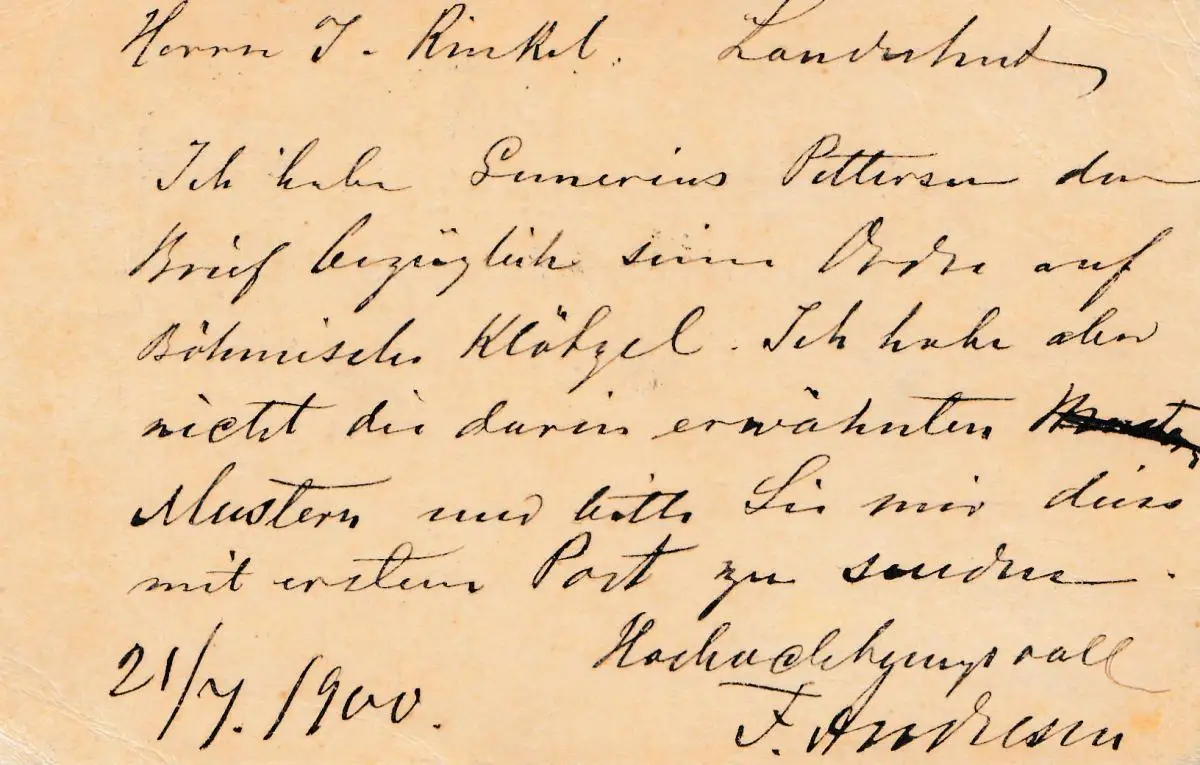 Herrn J. Rinkel. Landeshut
Ich habe Gunerius Pettersen den
Brief bezüglich seine Ordre auf
Böhmische Klötzel. Ich habe aber
nicht die darin erwähnten
Mustern und bitte Sie mir diese
mit erstem Post zu senden.
Hochachtungsvoll
21/7. 1900. F. Andresen